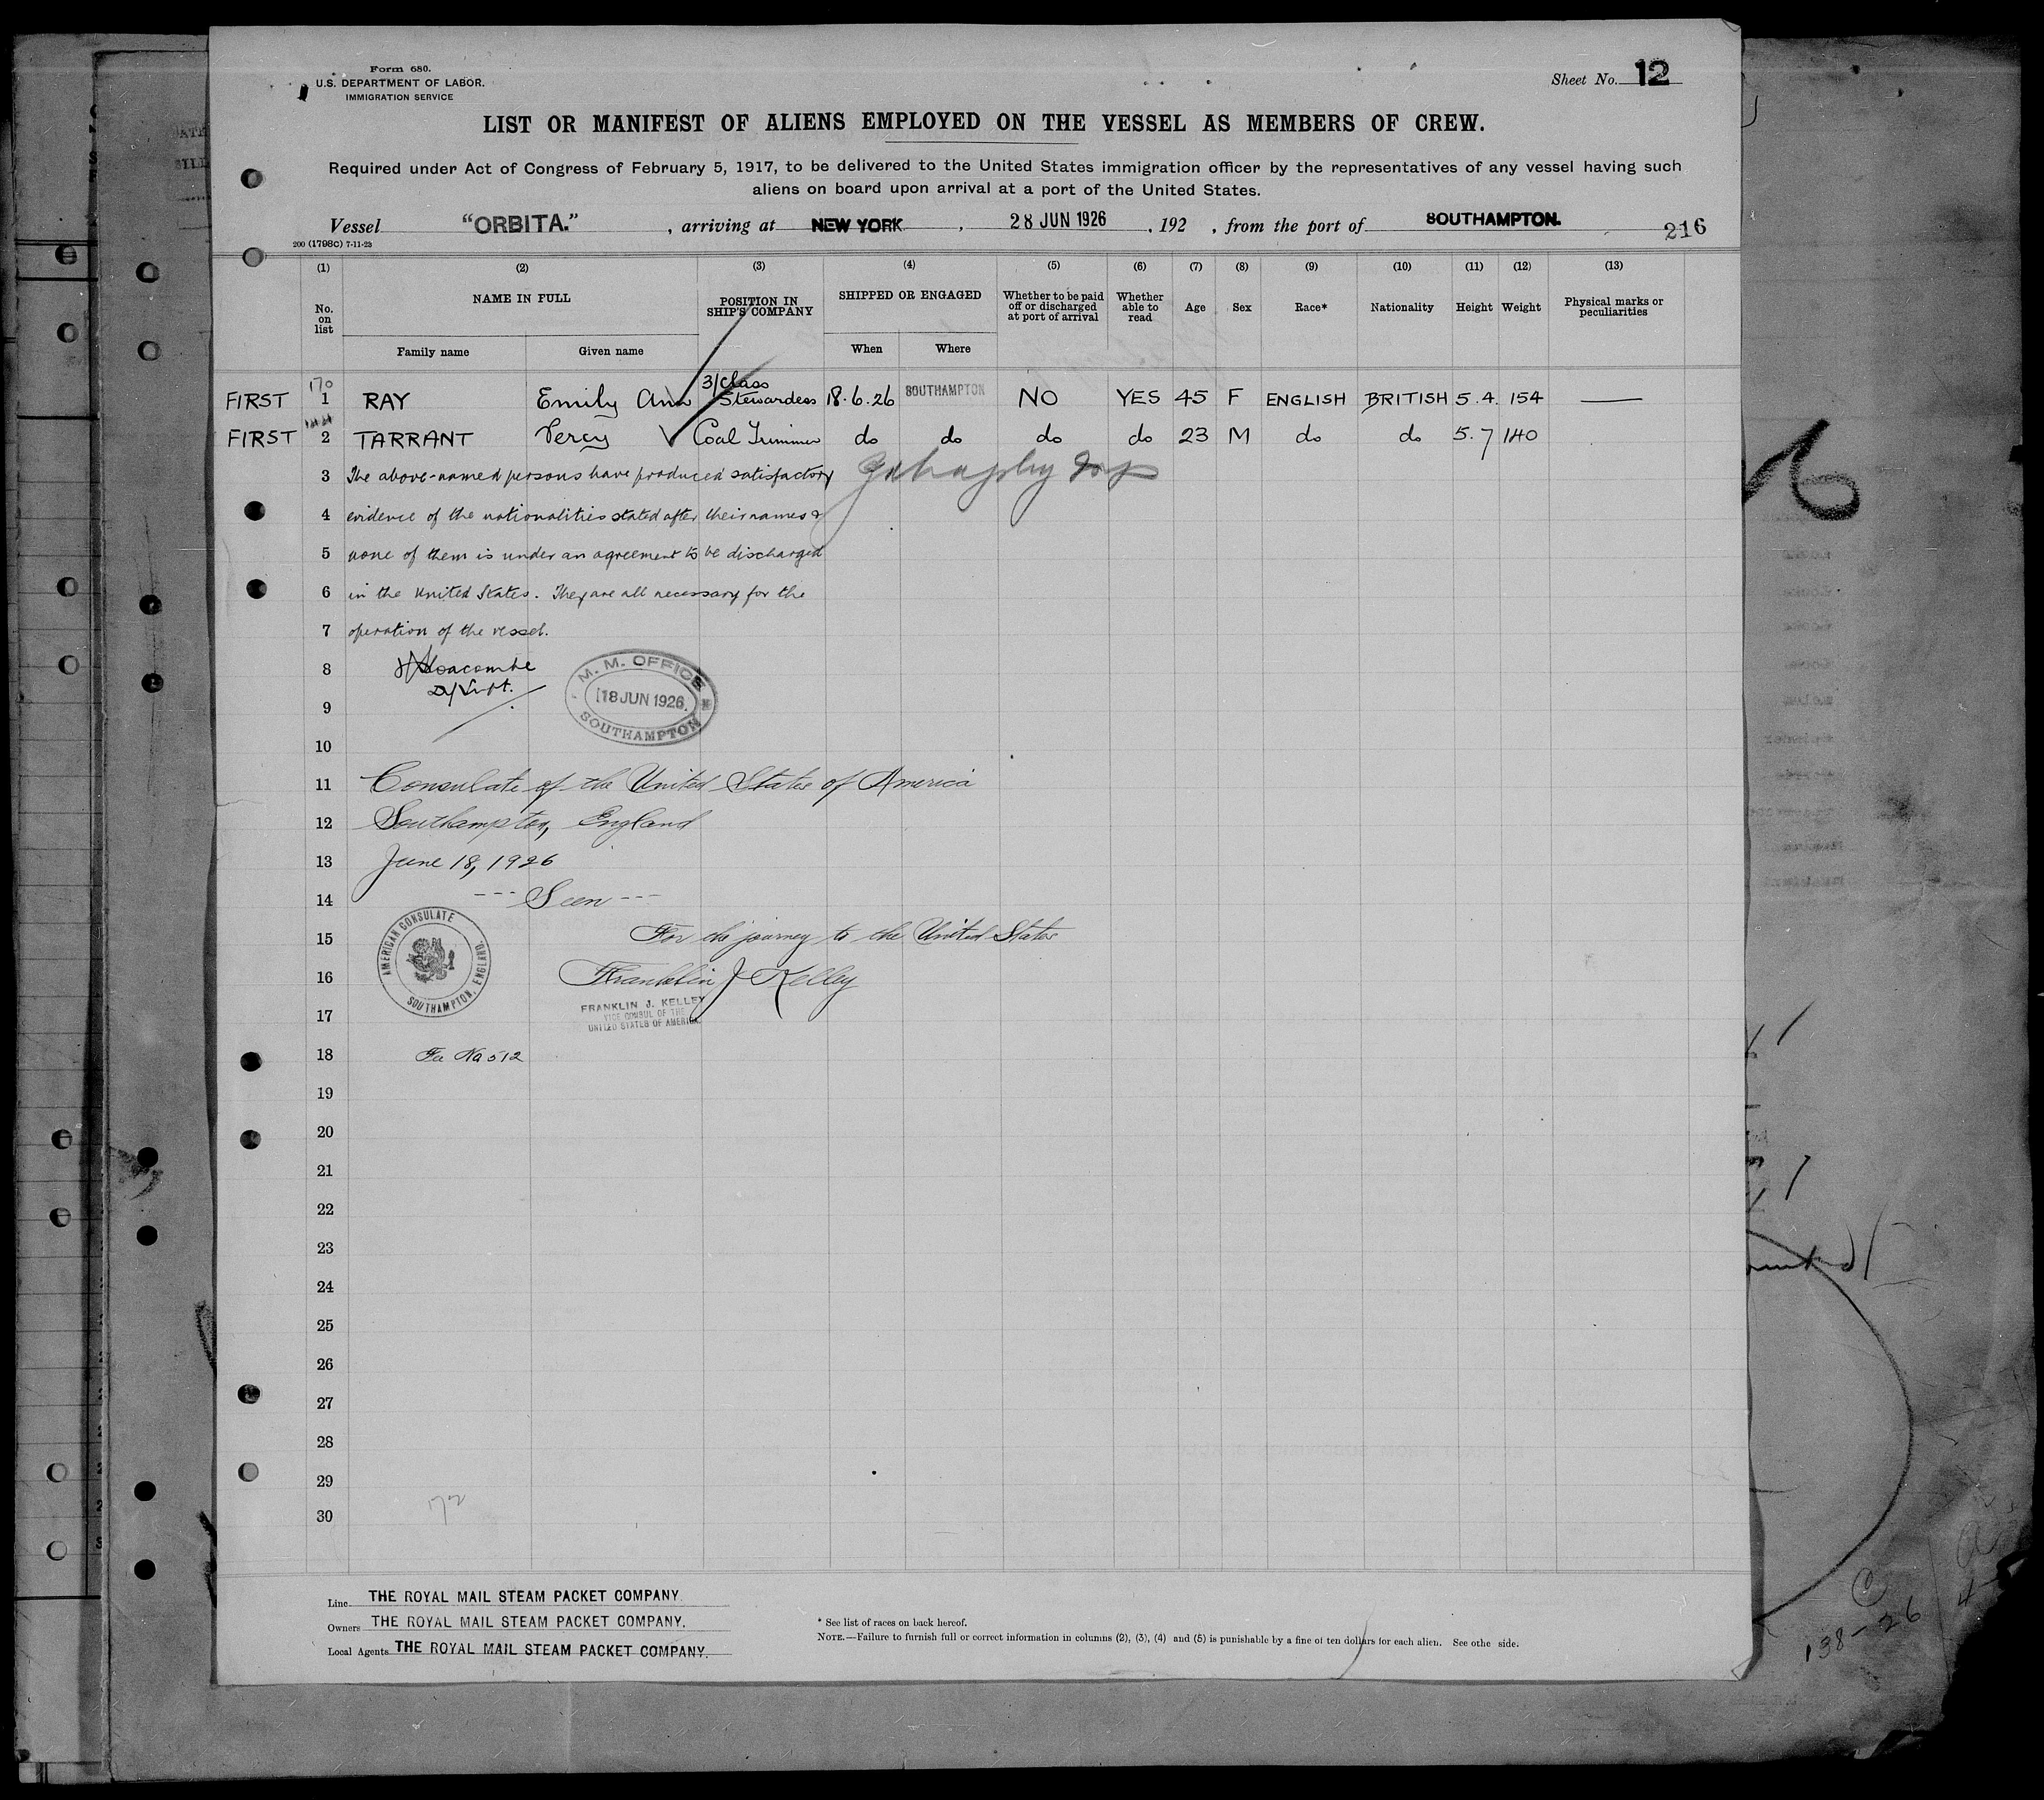 Form 680.
U.S. DEPARTMENT OF LABOR.
IMMIGRATION SERVICE
Sheet No. 12
LIST OR MANIFEST OF ALIENS EMPLOYED ON THE VESSEL AS MEMBERS OF CREW.
Required under Act of Congress of February 5, 1917, to be delivered to the United States immigration officer by the representatives of any vessel having such
aliens on board upon arrival at a port of the United States.
Vessel "ORBITA." , arriving at NEW YORK , 28 JUN 1926 , 192 , from the port of SOUTHAMPTON.
200 (1798c) 7-11-23
216
(1) (2) (3) (4) (5) (6) (7) (8) (9) (10) (11) (12) (13)
No. on list NAME IN FULL POSITION IN SHIP'S COMPANY SHIPPED OR ENGAGED Whether to be paid off or discharged at port of arrival Whether able to read Age Sex Race* Nationality Height Weight Physical marks or peculiarities
Family name Given name When Where
170
FIRST 1 RAY Emily Ann 3/class Stewardess 18.6.26 SOUTHAMPTON NO YES 45 F ENGLISH BRITISH 5.4. 154 —
FIRST 2 TARRANT Percy Coal Trimmer do do do do 23 M do do 5.7 140
3 The above-named persons have produced satisfactory
4 evidence of the nationalities stated after their names &
5 none of them is under an agreement to be discharged
6 in the United States. They are all necessary for the
7 operation of the vessel.
8
D/Supt.
9
M. M. OFFICE
18 JUN 1926.
SOUTHAMPTON
10
11 Consulate of the United States of America
12 Southampton, England
13 June 18, 1926
14 --- Seen ---
15 For the journey to the United States
AMERICAN CONSULATE
SOUTHAMPTON, ENGLAND.
16 Franklin J Kelley
17 FRANKLIN J. KELLEY
VICE CONSUL OF THE
UNITED STATES OF AMERICA
18 Fee No 512
19
20
21
22
23
24
25
26
27
28
29
30
172
Line THE ROYAL MAIL STEAM PACKET COMPANY.
Owners THE ROYAL MAIL STEAM PACKET COMPANY.
Local Agents THE ROYAL MAIL STEAM PACKET COMPANY.
* See list of races on back hereof.
NOTE.—Failure to furnish full or correct information in columns (2), (3), (4) and (5) is punishable by a fine of ten dollars for each alien. See othe side.
138-26